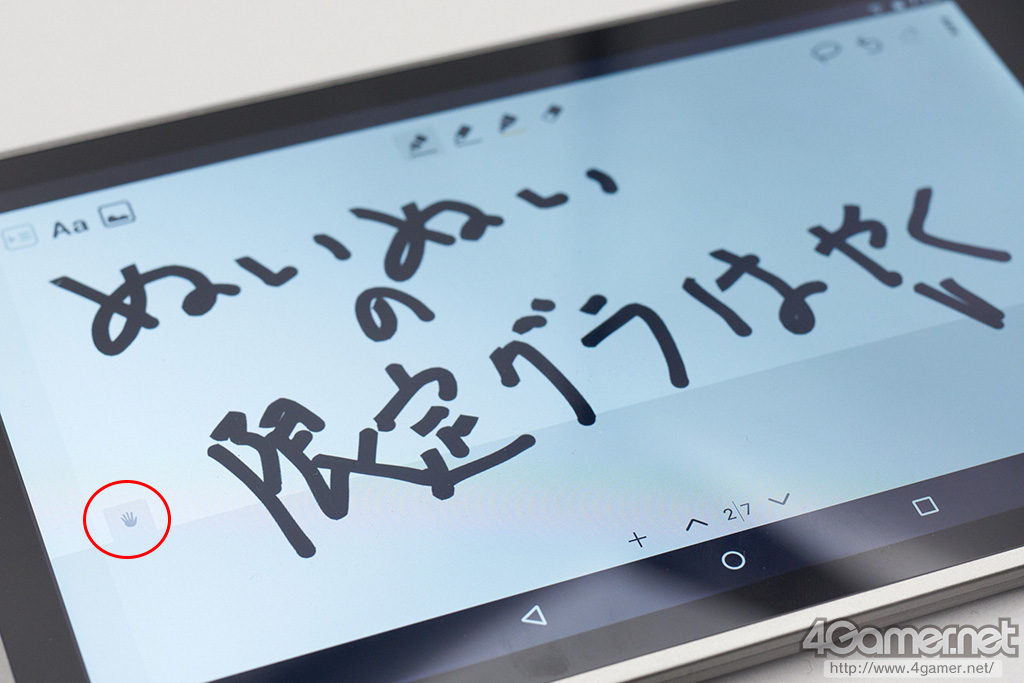 Aa
ぬいぬい
の
限定グラはやく
2/7
4Gamer.net
http://www.4gamer.net/